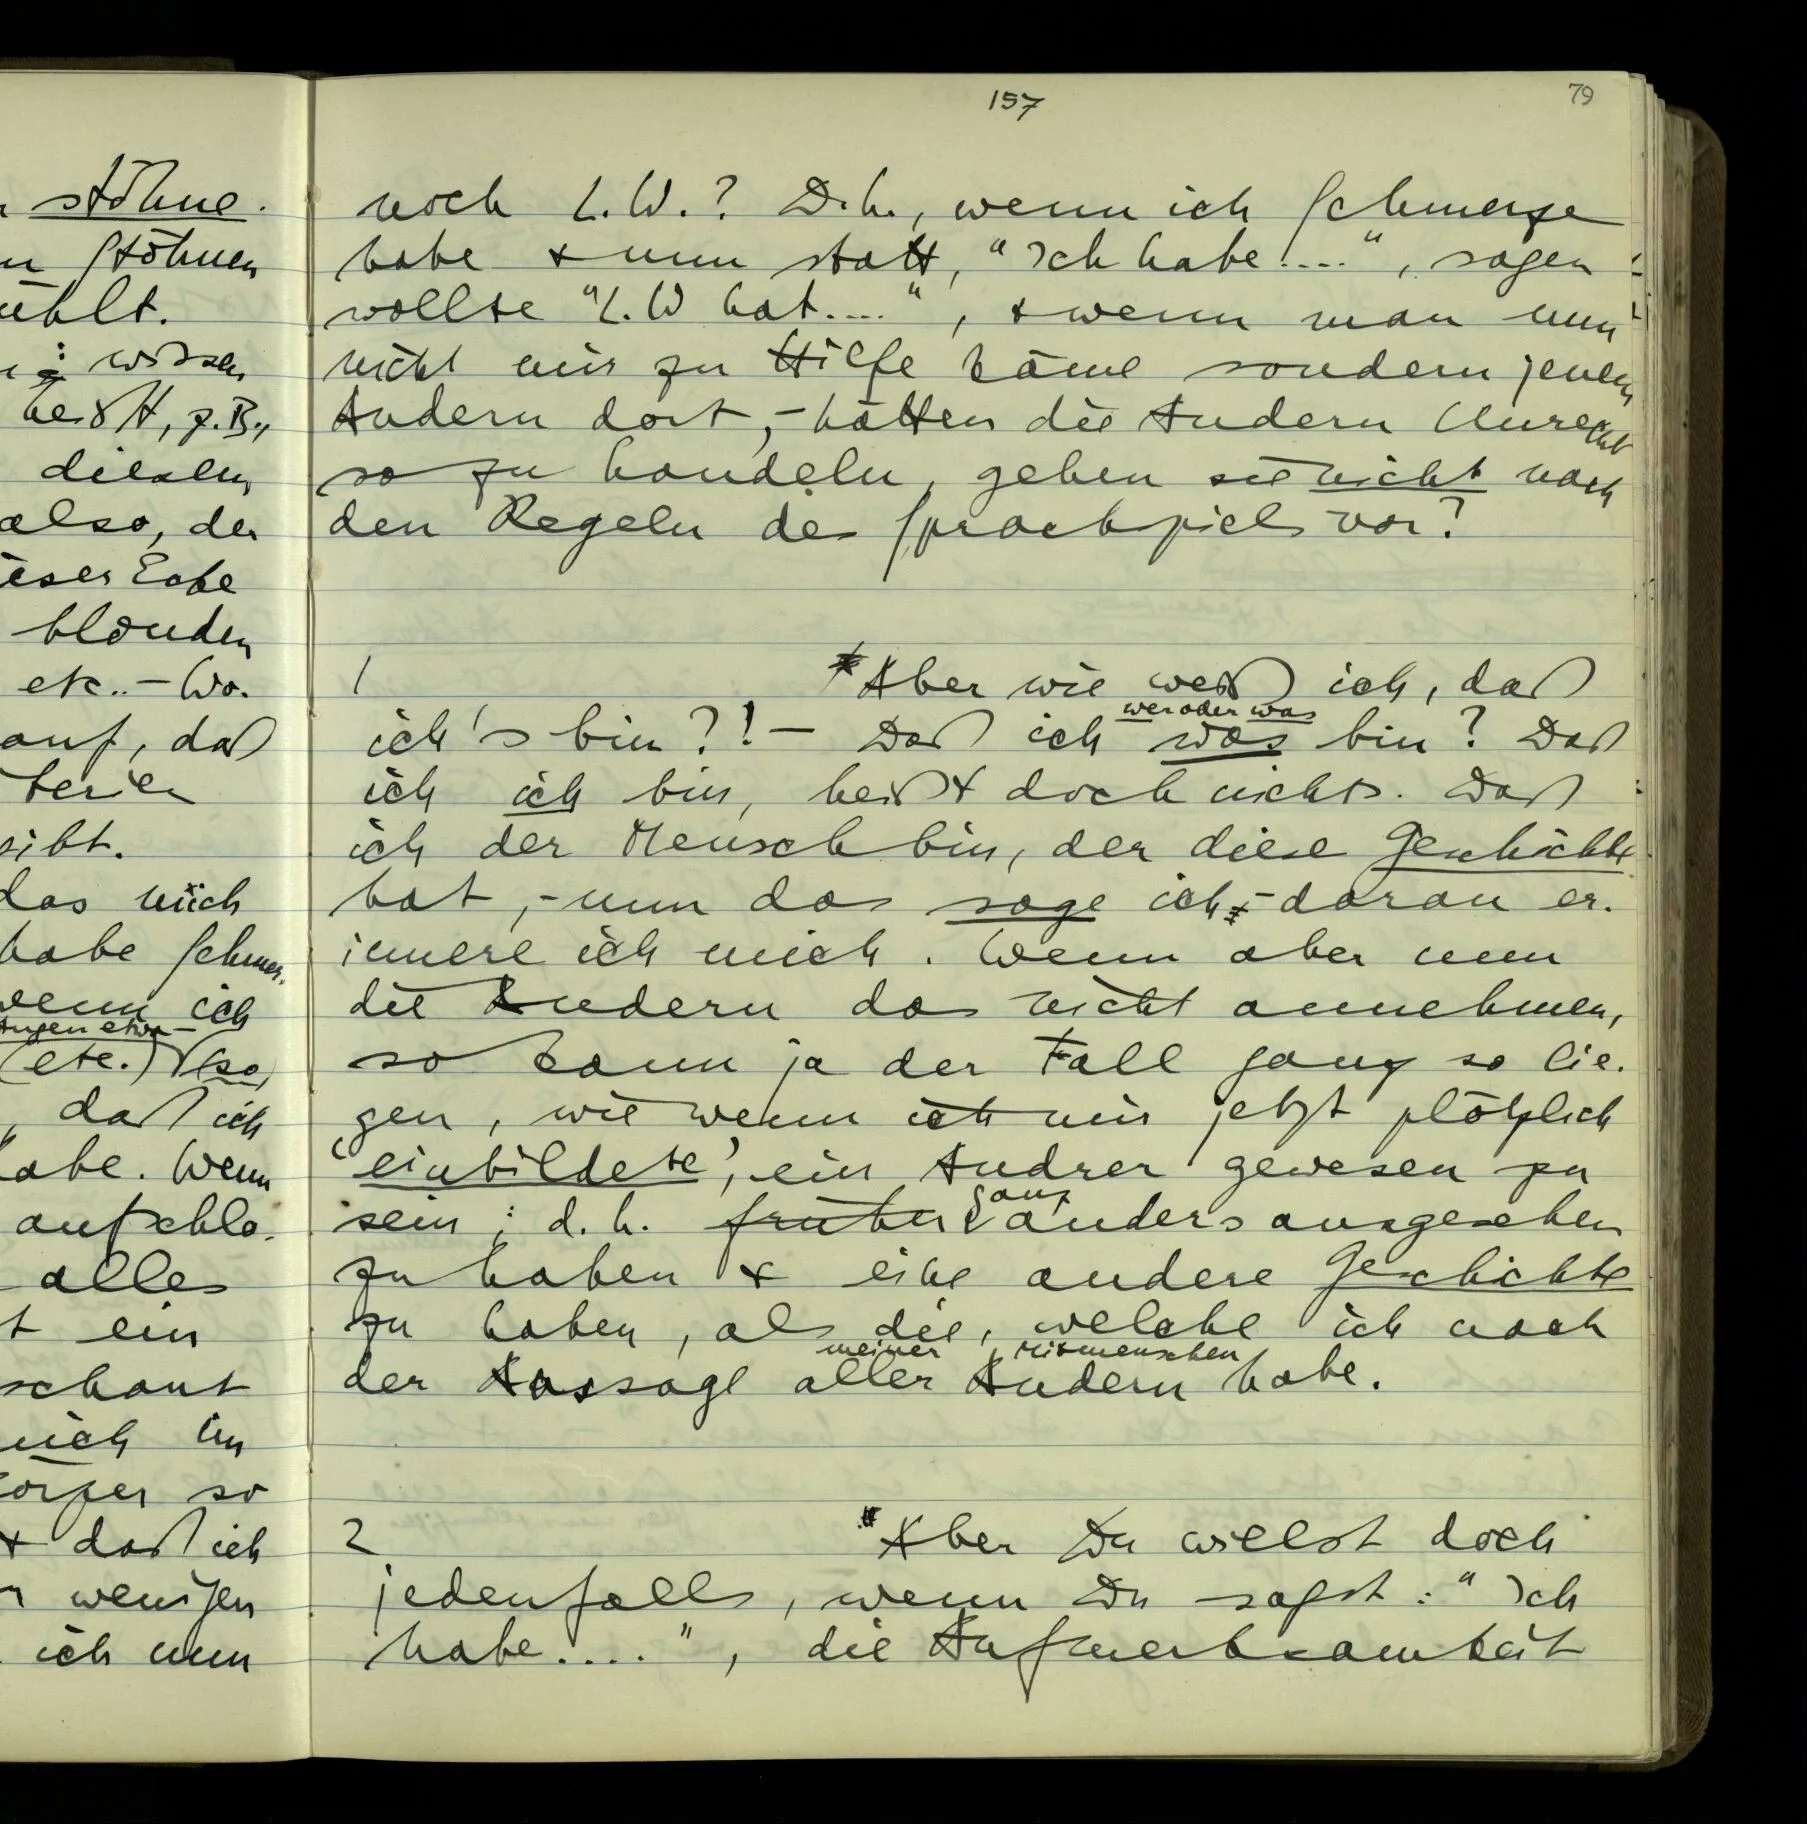 157
79
stöhne.
Stöhnen
ühlt.
: wissen
heißt, z.B.,
diesem
also, der
ieser Farbe
blonden
etc.. – Wo-
auf, daß
terien
gibt.
das mich
habe Schmer-
wenn ich
Augen etwa –
(etc.) (so)
, daß ich
habe. Wenn
aufschla-
alles
t ein
schaut
mich im
Körper so
+ daß ich
wenigen
ich nun
noch L.W.? D.h., wenn ich Schmerze
habe + nun statt, "Ich habe....", sagen
wollte "L.W hat....", + wenn man nun
nicht mir zu Hilfe käme sondern jenem
Andern dort, – hätten die Andern Unrecht
so zu handeln, gehen sie nicht nach
den Regeln des Sprachspiels vor?
1 Aber wie weiß ich, daß
wer oder was
ich's bin?! – Daß ich was bin? Daß
ich ich bin, heißt doch nichts. Daß
ich der Mensch bin, der diese Geschichte
hat, – nun das sage ich, – daran er-
innere ich mich. Wenn aber nun
die Andern das nicht annehmen,
so kann ja der Fall ganz so lie-
gen, wie wenn ich mir jetzt plötzlich
'einbildete', ein Andrer gewesen zu
ganz
sein; d.h. früher anders ausgesehen
zu haben + eine andere Geschichte
zu haben, als die, welche ich nach
meiner Mitmenschen
der Aussage aller Andern habe.
2 "Aber Du willst doch
jedenfalls, wenn Du sagst: "Ich
habe....", die Aufmerksamkeit